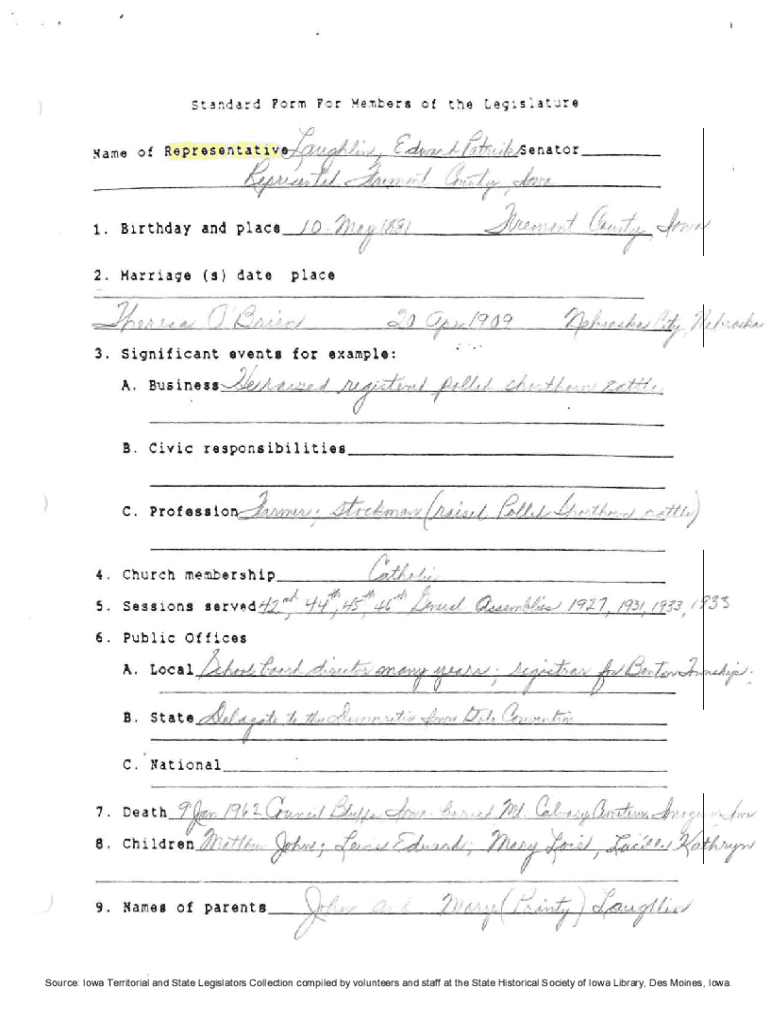 Standard Form For Members of the Legislature
Name of Representative Laughlin, Edward Patrick Senator
Represented Fremont County, Iowa
1. Birthday and place 10 May 1881 Fremont County, Iowa
2. Marriage (s) date place
Theresa O'Brien 20 Apr 1909 Nebraska City, Nebraska
3. Significant events for example:
A. Business He raised registered polled shorthorn cattle
B. Civic responsibilities
C. Profession Farmer; Stockman (raised Polled Shorthorn cattle)
4. Church membership Catholic
5. Sessions served 42nd, 44th, 45th, 46th General Assemblies 1927, 1931, 1933, 1935
6. Public Offices
A. Local School board director many years; registrar for Benton Township.
B. State Delegate to the Democratic Iowa State Convention
C. National
7. Death 9 Jan 1962 Council Bluffs, Iowa buried Mt. Calvary Cemetery, Iowa
8. Children Matthew John; Edward; Mary Lois, Lucille Kathryn
9. Names of parents John and Mary (Printy) Laughlin
Source: Iowa Territorial and State Legislators Collection compiled by volunteers and staff at the State Historical Society of Iowa Library, Des Moines, Iowa.